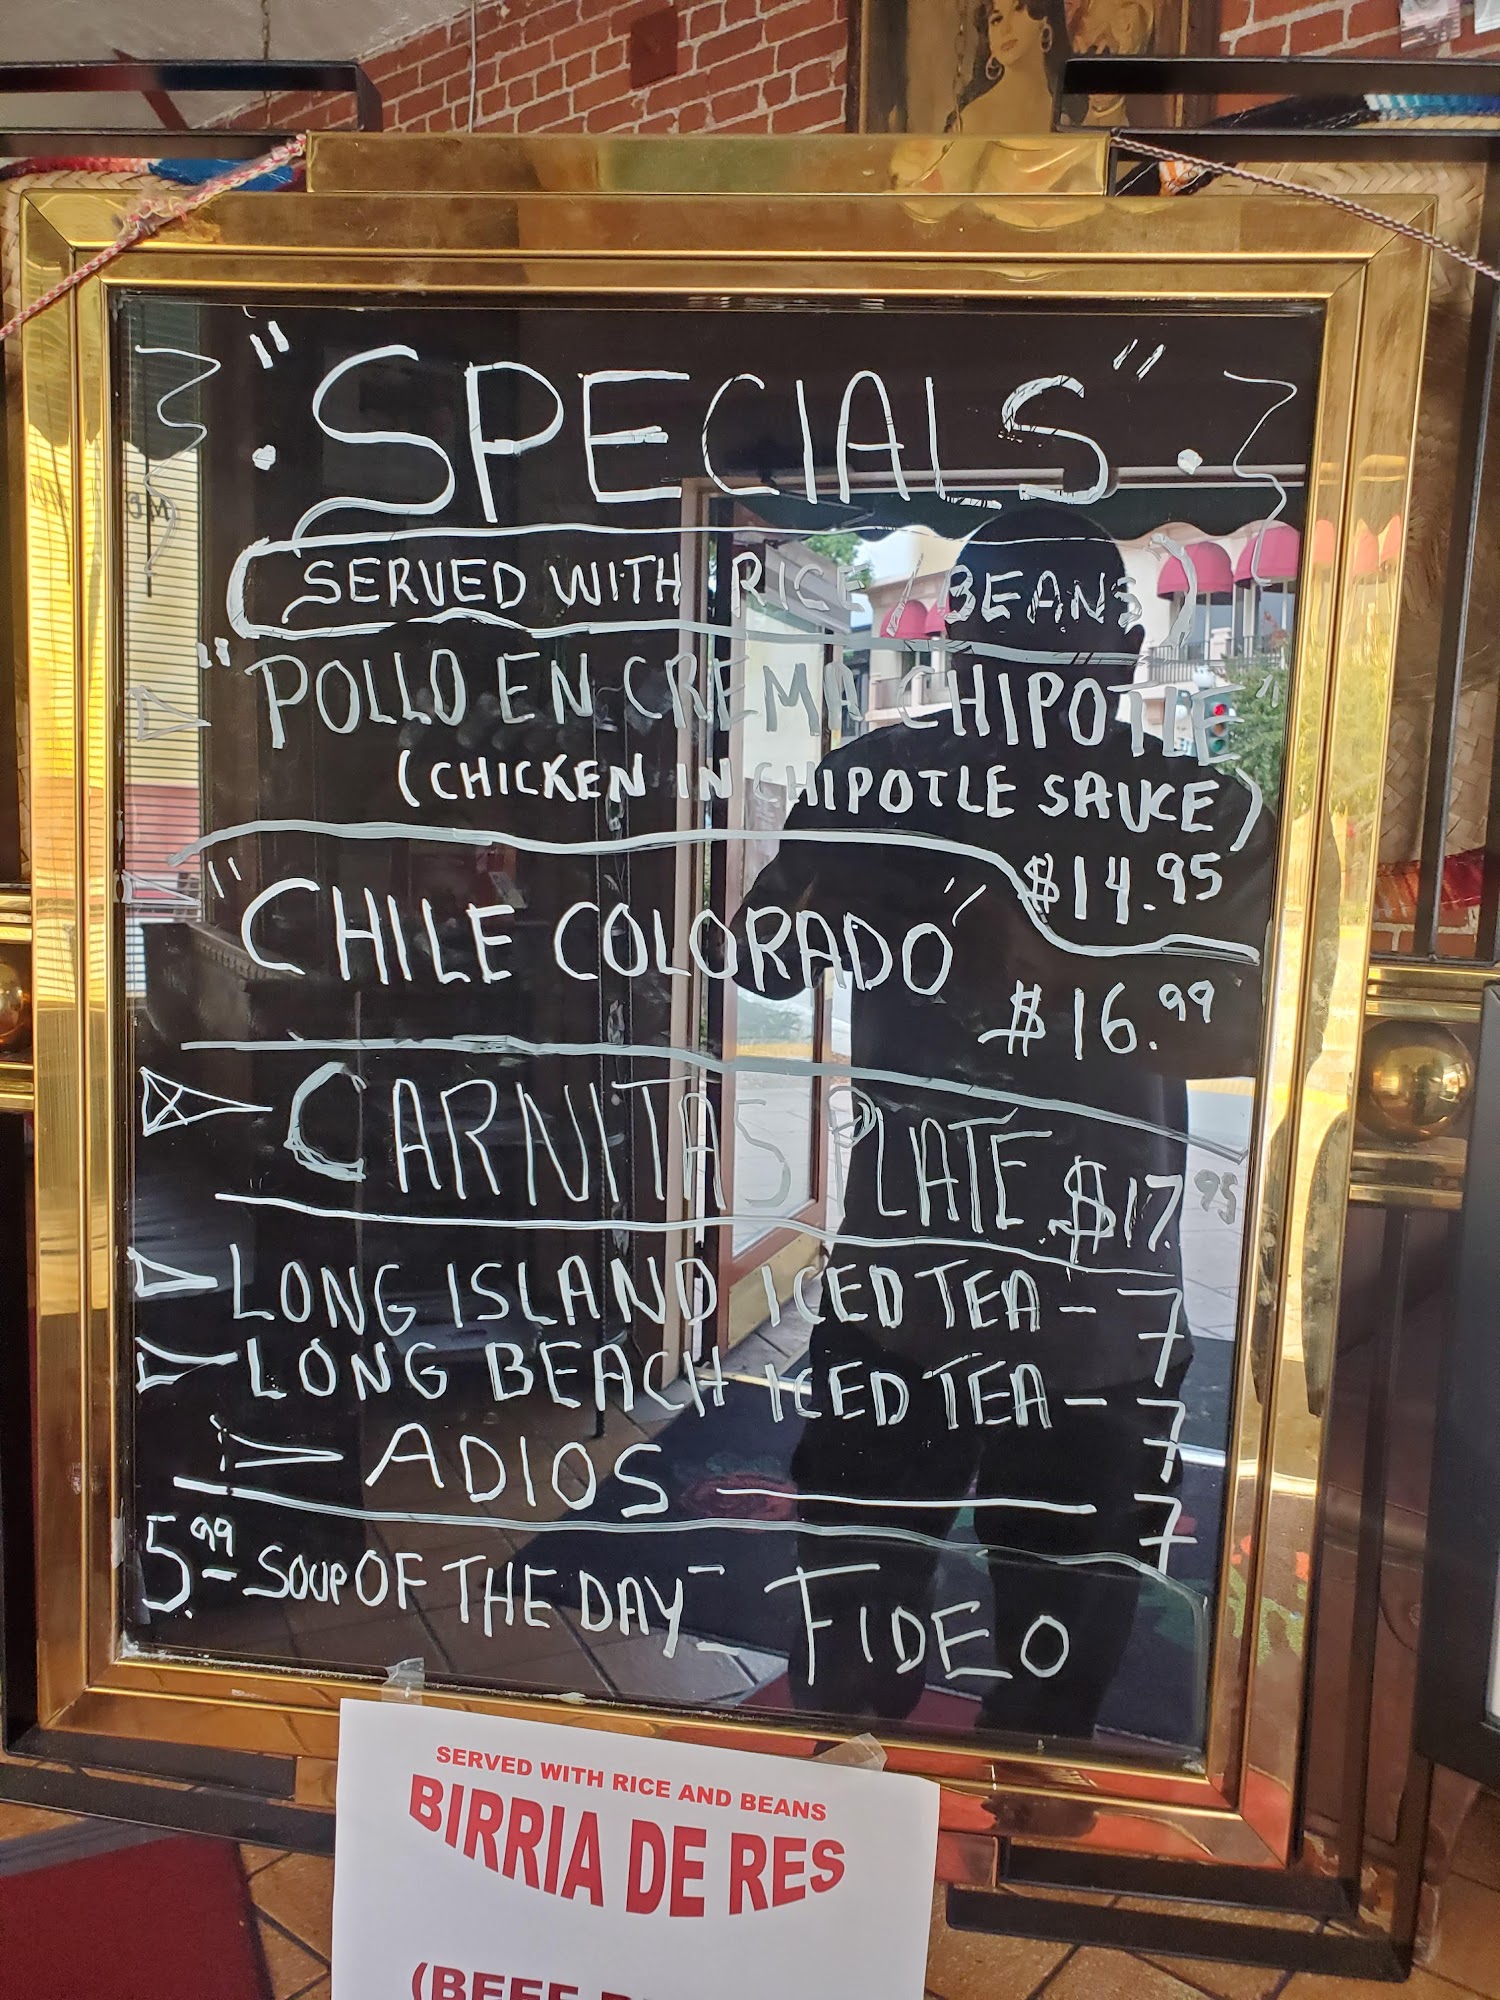 "SPECIALS"
(SERVED WITH RICE / BEANS)
"POLLO EN CREMA CHIPOTLE"
(CHICKEN IN CHIPOTLE SAUCE)
$14.95
"CHILE COLORADO"
$16.99
CARNITAS PLATE $17.95
LONG ISLAND ICED TEA - 7
LONG BEACH ICED TEA - 7
ADIOS — 7
5.99 - SOUP OF THE DAY - FIDEO
SERVED WITH RICE AND BEANS
BIRRIA DE RES
(BEEF